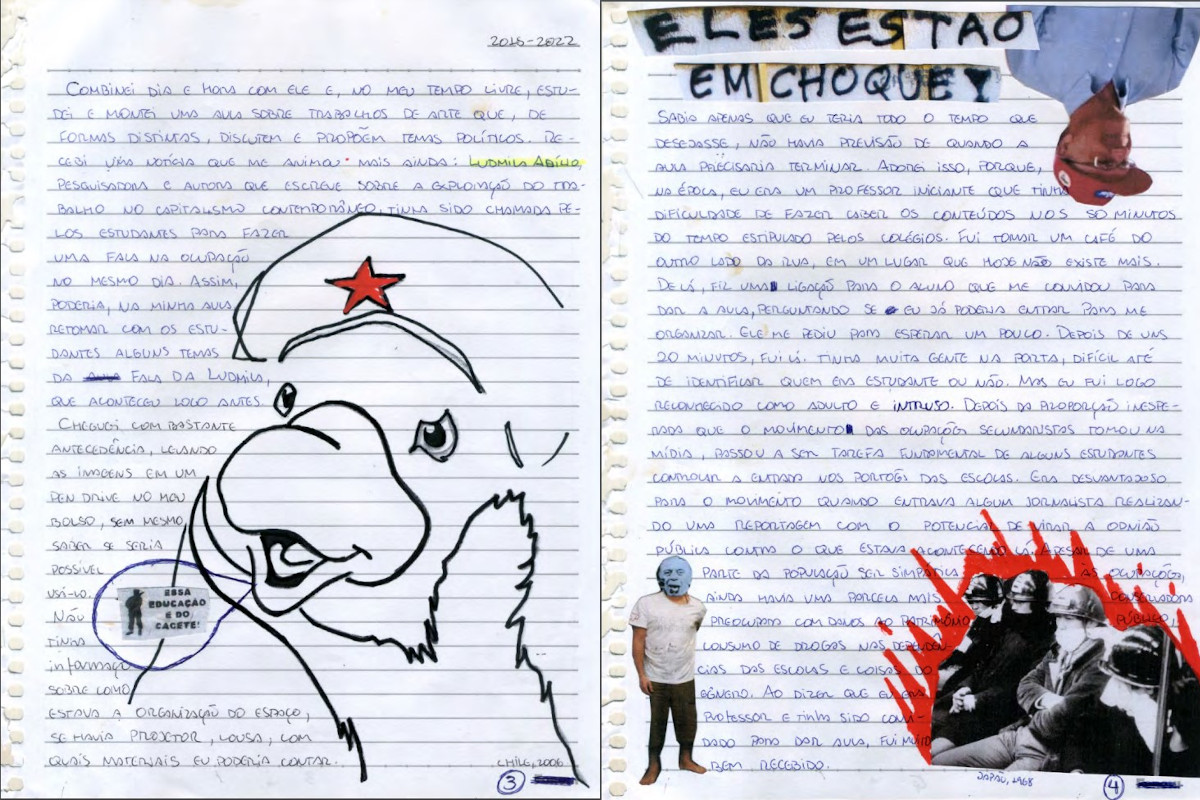 2016-2022
COMBINEI DIA E HORA COM ELE E, NO MEU TEMPO LIVRE, ESTU-
DEI E MONTEI UMA AULA SOBRE TRABALHOS DE ARTE QUE, DE
FORMAS DISTINTAS, DISCUTEM E PROPÕEM TEMAS POLÍTICOS. RE-
CEBI UMA NOTÍCIA QUE ME ANIMOU MAIS AINDA: LUDMILA ABÍLIO,
PESQUISADORA E AUTORA QUE ESCREVE SOBRE A EXPLORAÇÃO DO TRA-
BALHO NO CAPITALISMO CONTEMPORÂNEO, TINHA SIDO CHAMADA PE-
LOS ESTUDANTES PARA FAZER
UMA FALA NA OCUPAÇÃO
NO MESMO DIA. ASSIM,
PODERIA, NA MINHA AULA
RETOMAR COM OS ESTU-
DANTES ALGUNS TEMAS
DA FALA DA LUDMILA,
QUE ACONTECEU LOGO ANTES.
CHEGUEI COM BASTANTE
ANTECEDÊNCIA, LEVANDO
AS IMAGENS EM UM
PEN DRIVE NO MEU
BOLSO, SEM MESMO
SABER SE SERIA
POSSÍVEL
USÁ-LO.
NÃO
TINHA
INFORMAÇÃO
SOBRE COMO
ESTAVA A ORGANIZAÇÃO DO ESPAÇO,
SE HAVIA PROJETOR, LOUSA, COM
QUAIS MATERIAIS EU PODERIA CONTAR.
ESSA
EDUCAÇÃO
É DO
CACETE!
CHILE, 2006
3
ELES ESTÃO
EM CHOQUE
SABIA APENAS QUE EU TERIA TODO O TEMPO QUE
DESEJASSE, NÃO HAVIA PREVISÃO DE QUANDO A
AULA PRECISARIA TERMINAR. ADOREI ISSO, PORQUE,
NA ÉPOCA, EU ERA UM PROFESSOR INICIANTE QUE TINHA
DIFICULDADE DE FAZER CABER OS CONTEÚDOS NOS 50 MINUTOS
DO TEMPO ESTIPULADO PELOS COLÉGIOS. FUI TOMAR UM CAFÉ DO
OUTRO LADO DA RUA, EM UM LUGAR QUE HOJE NÃO EXISTE MAIS.
DE LÁ, FIZ UMA LIGAÇÃO PARA O ALUNO QUE ME CONVIDOU PARA
DAR A AULA, PERGUNTANDO SE EU JÁ PODERIA ENTRAR PARA ME
ORGANIZAR. ELE ME PEDIU PARA ESPERAR UM POUCO. DEPOIS DE UNS
20 MINUTOS, FUI LÁ. TINHA MUITA GENTE NA PORTA, DIFÍCIL ATÉ
DE IDENTIFICAR QUEM ERA ESTUDANTE OU NÃO. MAS EU FUI LOGO
RECONHECIDO COMO ADULTO E INTRUSO. DEPOIS DA PROPORÇÃO INESPE-
RADA QUE O MOVIMENTO DAS OCUPAÇÕES SECUNDARISTAS TOMOU NA
MÍDIA, PASSOU A SER TAREFA FUNDAMENTAL DE ALGUNS ESTUDANTES
CONTROLAR A ENTRADA NOS PORTÕES DAS ESCOLAS. ERA DESVANTAJOSO
PARA O MOVIMENTO QUANDO ENTRAVA ALGUM JORNALISTA REALIZAN-
DO UMA REPORTAGEM COM O POTENCIAL DE VIRAR A OPINIÃO
PÚBLICA CONTRA O QUE ESTAVA ACONTECENDO LÁ. APESAR DE UMA
PARTE DA POPULAÇÃO SER SIMPÁTICA ÀS OCUPAÇÕES,
AINDA HAVIA UMA PARCELA MAIS CONSERVADORA
PREOCUPADA COM DANOS AO PATRIMÔNIO PÚBLICO,
CONSUMO DE DROGAS NAS DEPENDÊN-
CIAS DAS ESCOLAS E COISAS DO
GÊNERO. AO DIZER QUE EU ERA
PROFESSOR E TINHA SIDO CONVI-
DADO PARA DAR AULA, FUI MUITO
BEM RECEBIDO.
JAPÃO, 1968
4